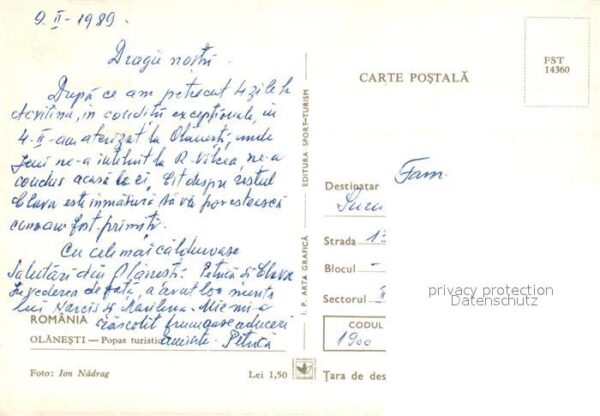 9. II - 1989.
Dragii noștri.
După ce am petrecut 4 zile la
în condiții excepționale, în
4-II- am aterizat la Olănești, unde
Jeni ne-a întîlnit la R. Vîlcea, ne-a
condus acasă la ei, Cît despre restul
Clava este în măsură să vă povestească
cum am fost primiți.
Cu cele mai călduroase
Salutări din Olănești. Petrică și Clava
de față, a avut loc nunta
lui Narcis și Marilena. Mie mi-a
răscolit frumoase aduceri
aminte. Petrică
ROMÂNIA
OLĂNEȘTI — Popas turistic
Foto: Ion Nădrag
Lei 1,50
I. P. ARTA GRAFICĂ
EDITURA SPORT-TURISM
CARTE POȘTALĂ
FST
14360
Destinatar Fam.
Strada 13
Blocul -
Sectorul II
CODUL
1900
Țara de des
privacy protection
Datenschutz